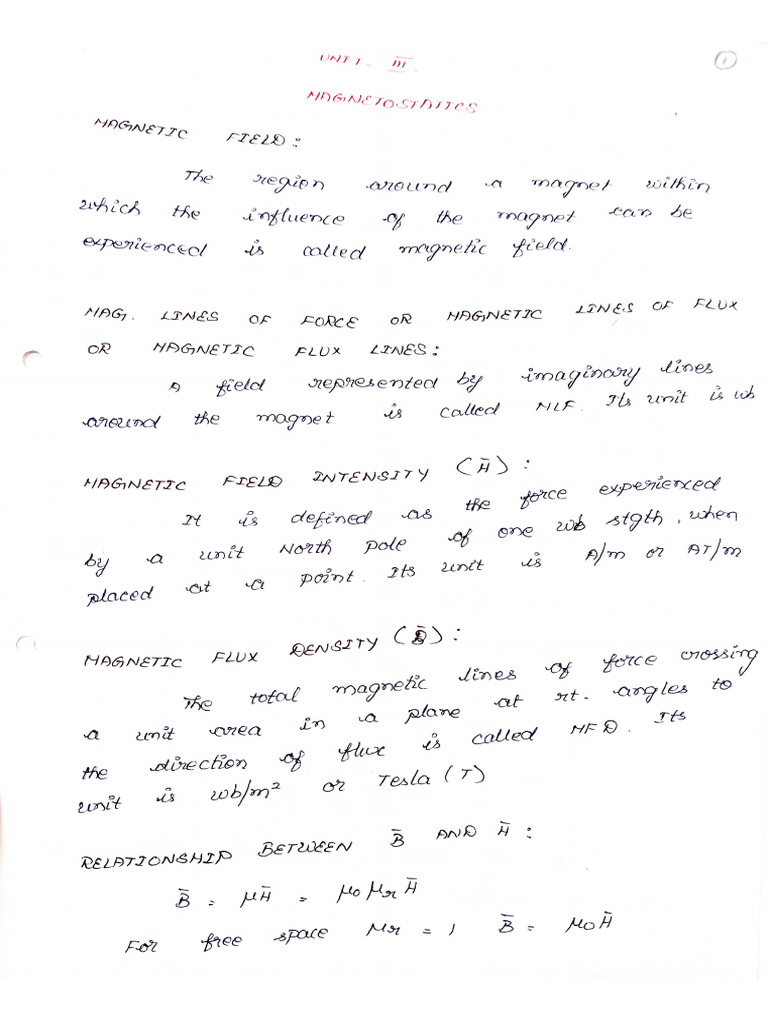 UNIT - III.
1
MAGNETOSTATICS
MAGNETIC FIELD:
The region around a magnet within
which the influence of the magnet can be
experienced is called magnetic field.
MAG. LINES OF FORCE OR MAGNETIC LINES OF FLUX
OR MAGNETIC FLUX LINES:
A field represented by imaginary lines
around the magnet is called MLF. Its unit is wb
MAGNETIC FIELD INTENSITY (H̄):
It is defined as the force experienced
by a unit North Pole of one wb stgth, when
placed at a point. Its unit is A/m or AT/m
MAGNETIC FLUX DENSITY (B̄):
The total magnetic lines of force crossing
a unit area in a plane at rt. angles to
the direction of flux is called MFD. Its
unit is wb/m² or Tesla (T)
RELATIONSHIP BETWEEN B̄ AND H̄:
B̄ = μH̄ = μ₀μᵣH̄
For free space μᵣ = 1 B̄ = μ₀H̄